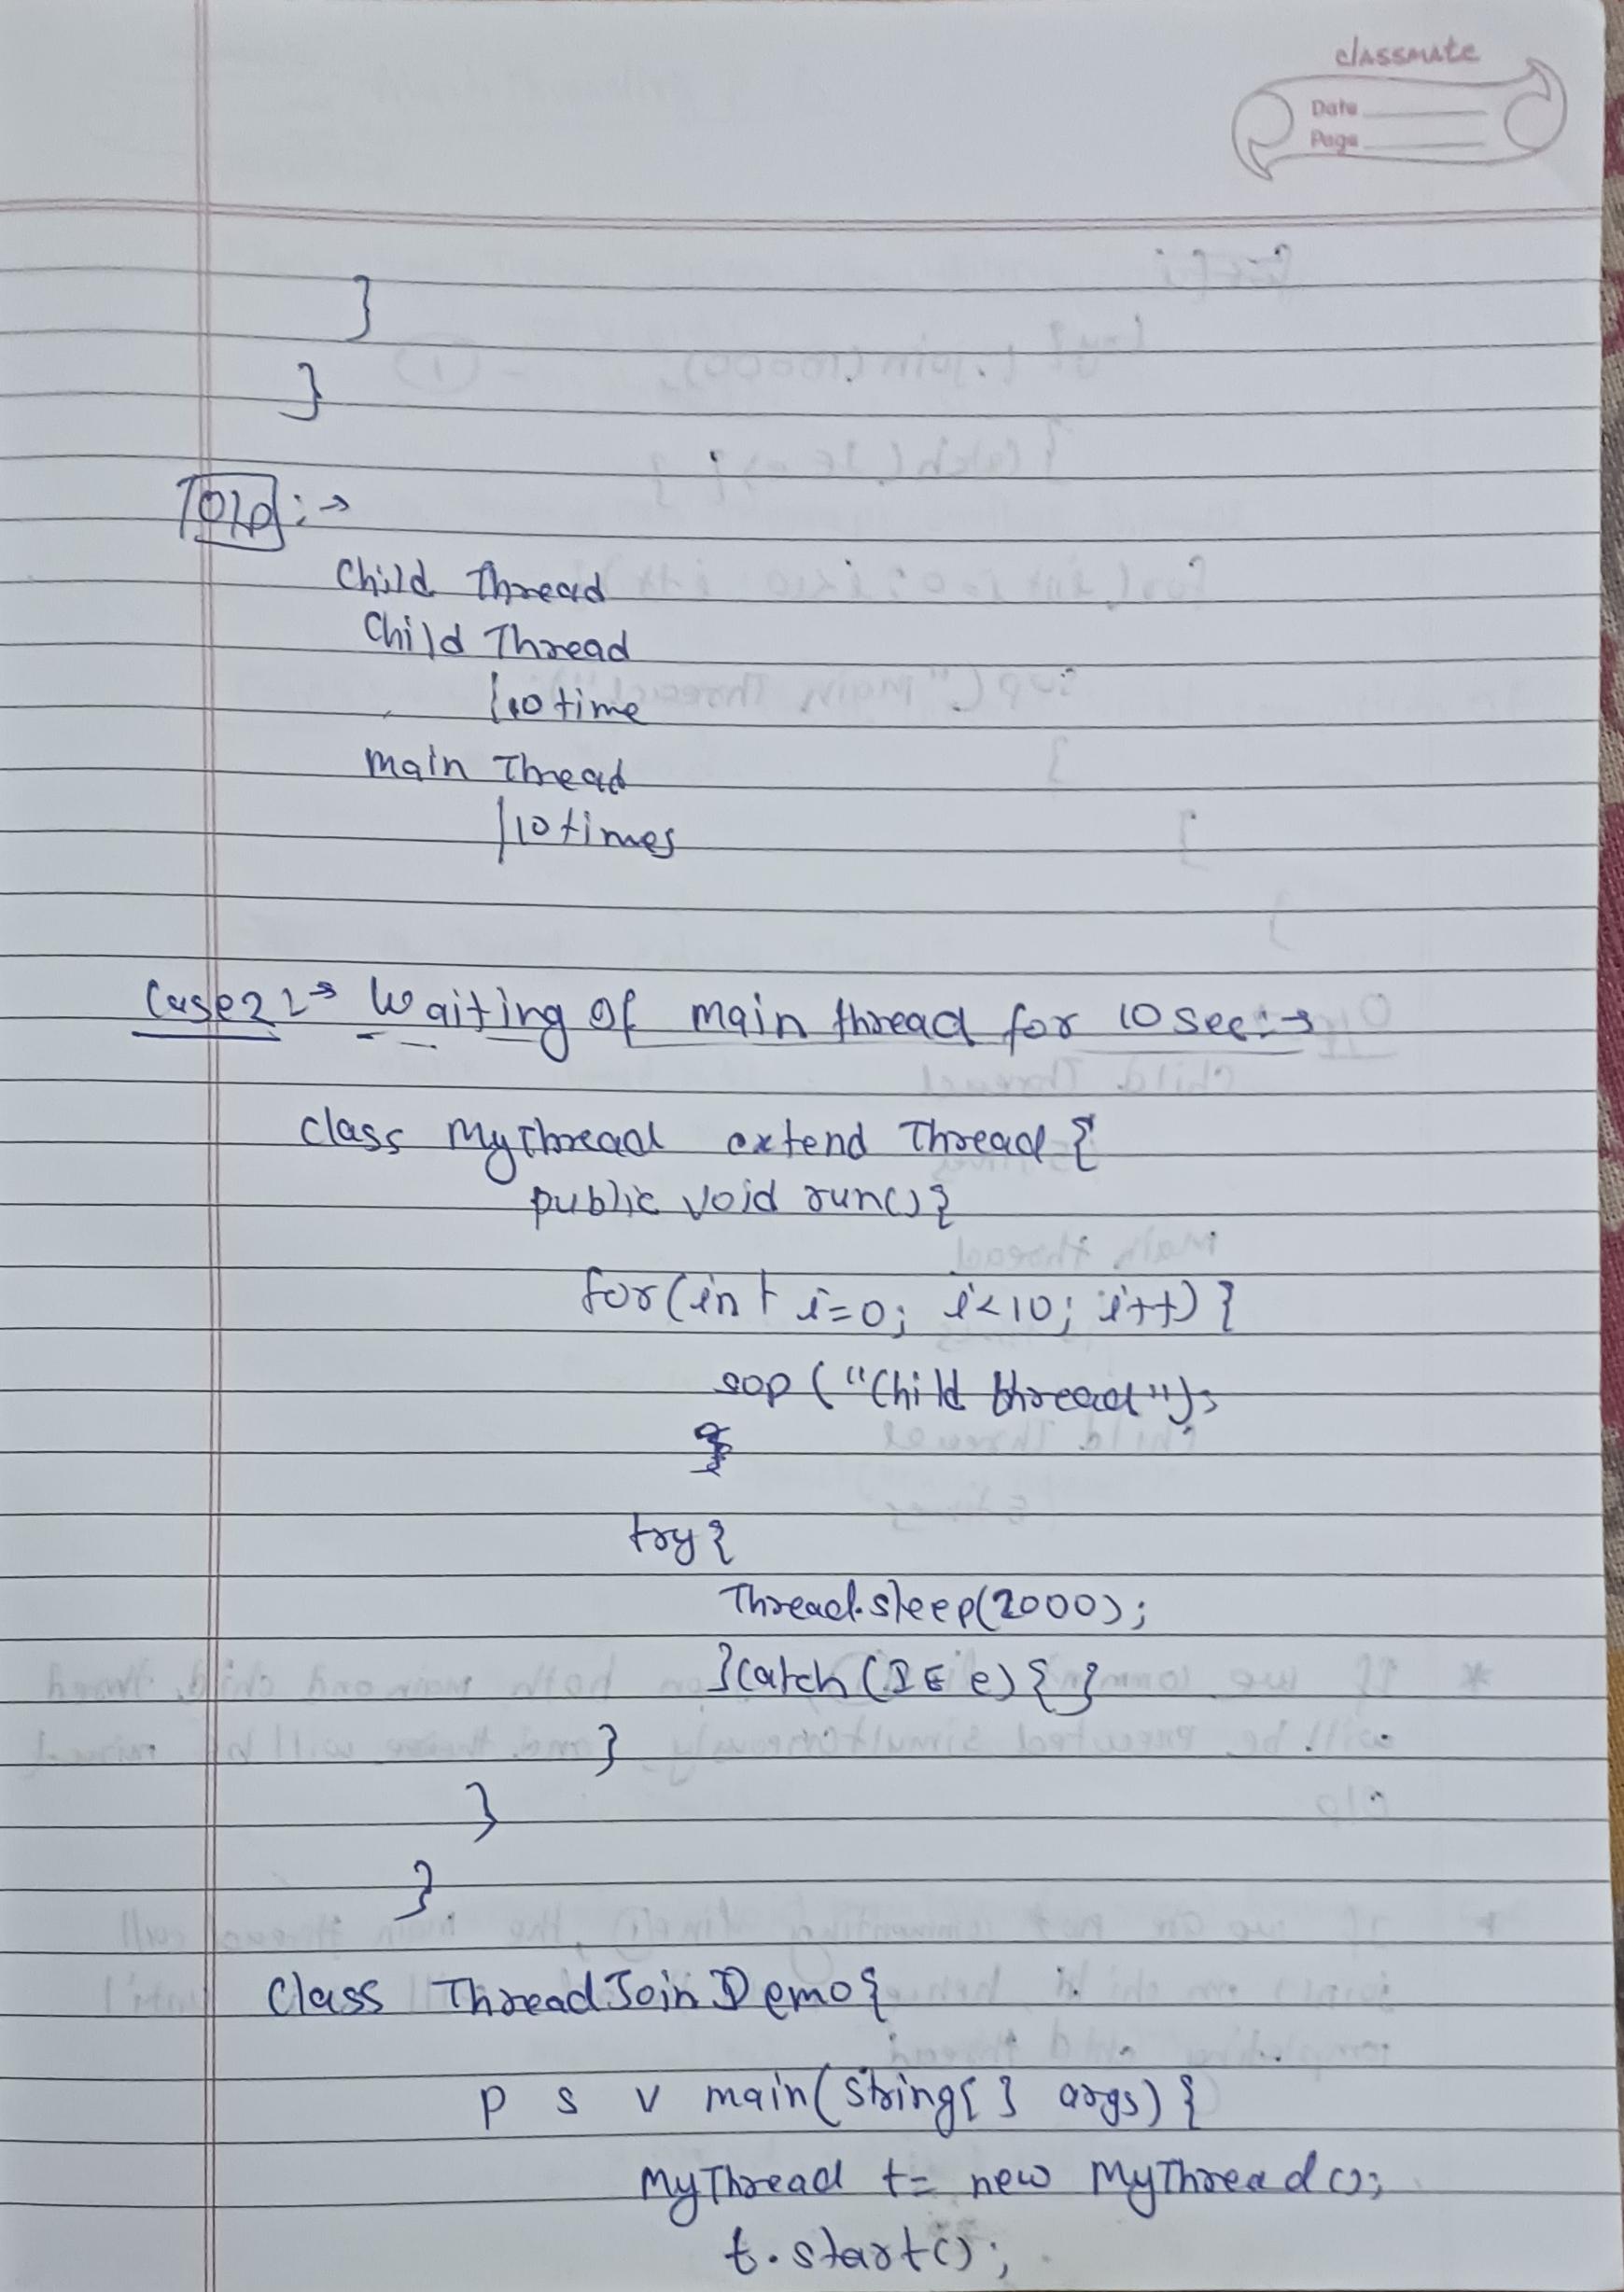 classmate
Date
Page
}
}
O/p :→
Child Thread
Child Thread
| 10 time
main Thread
| 10 times
Case2 :→ Waiting of main thread for 10 sec :→
class MyThread extend Thread {
public void run() {
for(int i=0; i<10; i++) {
sop ("Child thread");
try {
Thread.sleep(2000);
}catch (IE e) { }
}
}
}
Class ThreadJoinDemo {
p s v main(String[] args) {
MyThread t = new MyThread();
t.start();